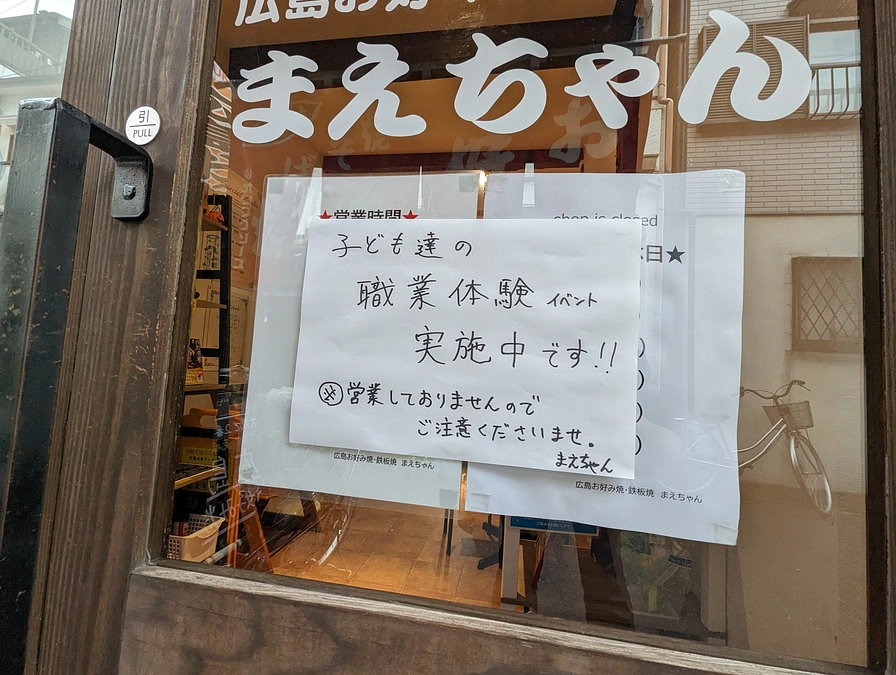 広島お好
まえちゃん
引
PULL
★営業時間★
shop is closed
日★
子ども達の
職業体験 イベント
実施中です!!
㊟営業しておりませんので
ご注意くださいませ。
まえちゃん
広島お好み焼・鉄板焼 まえちゃん
広島お好み焼・鉄板焼 まえちゃん